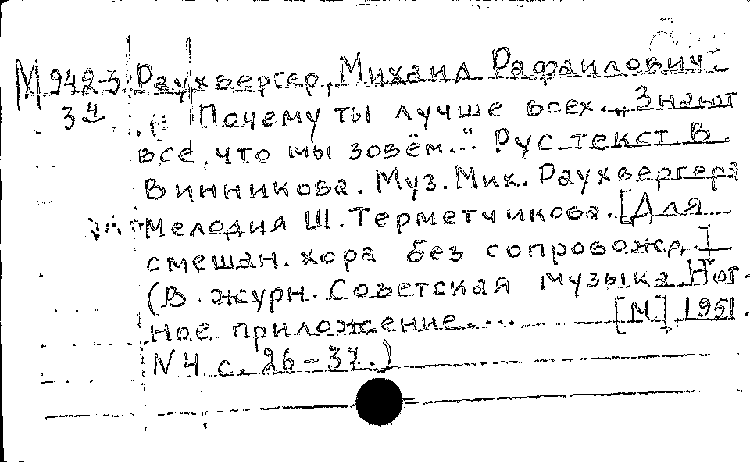 М 942-3 Раухвергер, Михаил Рафаилович.
34 Почему ты лучше всех... „Знают
все, что мы зовём..." Рус. текст В.
Винникова. Муз. Мих. Раухвергера
Мелодия Ш. Терметчикова. [Для
смешан. хора без сопровожд.]
(В журн. Советская музыка. Нот-
ное приложение.... [М.] 1951.
N 4 с. 26-37.)